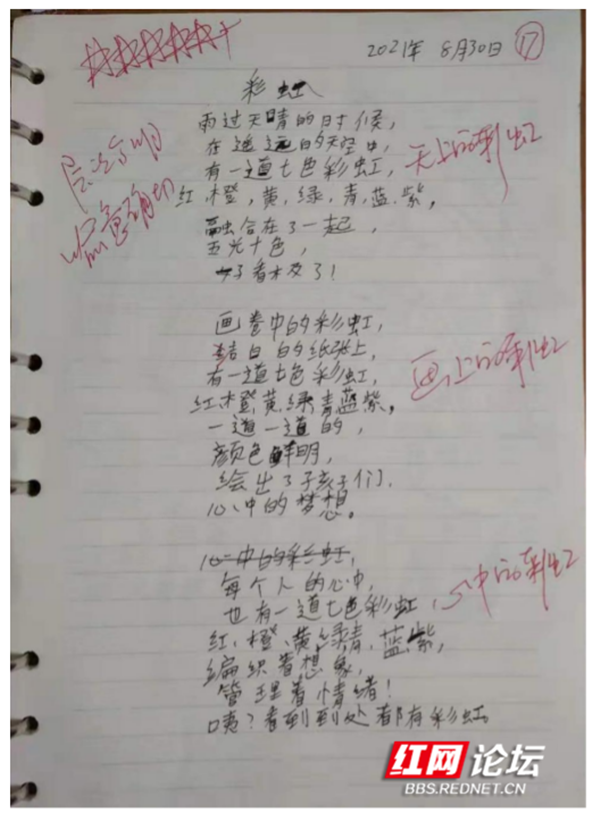 2021年 8月30日 ⑰
彩虹
雨过天晴的时候，
在遥远的天空中，
有一道七色彩虹，
天上的彩虹
层次分明
红，橙，黄，绿，青，蓝，紫，
融合在了一起，
五光十色，
好看极了！
画卷中的彩虹，
洁白的纸张上，
有一道七色彩虹，
画上的彩虹
红橙黄绿青蓝紫。
一道一道的，
颜色鲜明，
绘出了孩子们，
心中的梦想。
心中的彩虹，
每个人的心中，
也有一道七色彩虹，
心中的彩虹
红、橙、黄、绿、青、蓝、紫，
编织着想象，
管理着情绪！
咦？看到到处都有彩虹。
红网论坛
BBS.REDNET.CN